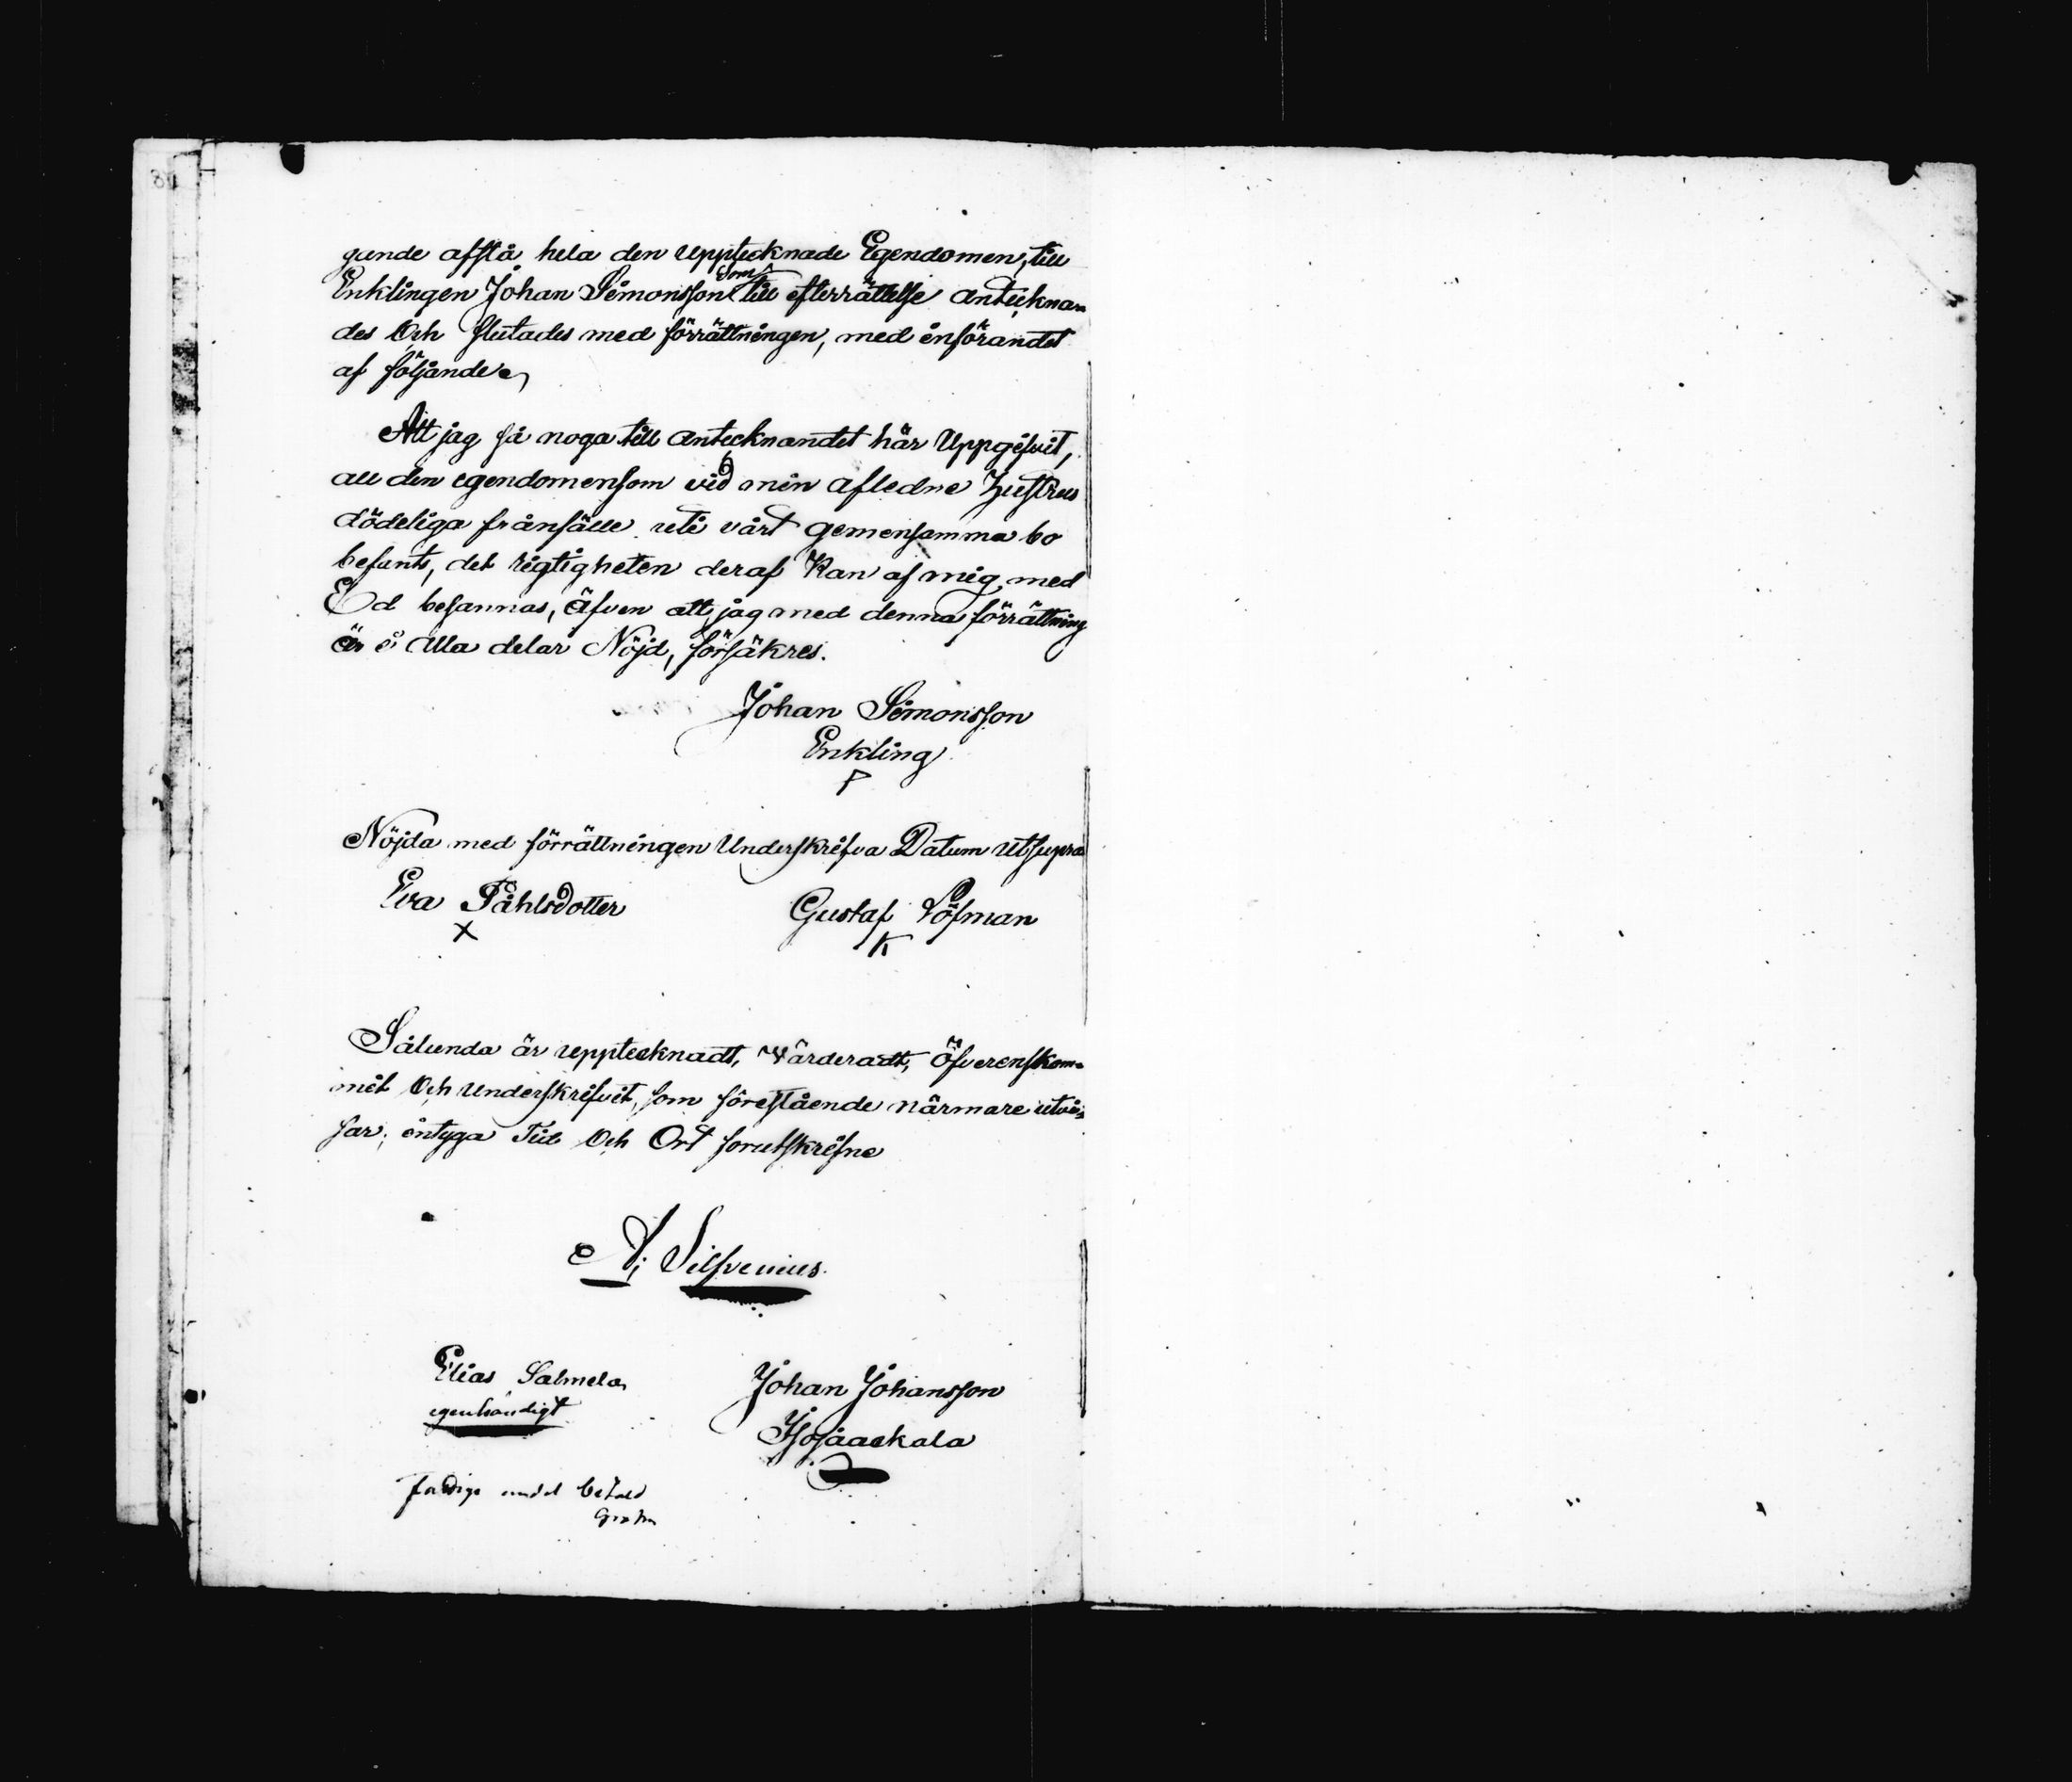 gande afstå hela den Upptecknade Egendomen, till
Enklingen Johan Simonsson som till efterrättelse anteckna-
des Och slutades med förrättningen, med införandet
af följande
Att jag så noga till antecknandet här Uppgifvit,
all den egendomen som vid min afledne Hustrus
dödeliga frånfälle uti vårt gemensamma bo
befunts, det rigtigheten deraf Kan af mig med
Ed besannas, äfven att jag med denna förrättning
är i Alla delar Nöjd, försäkres.
Johan Simonsson
Enkling
Nöjda med förrättningen Underskrifva Datum utsupra
Eva Påhlsdotter Gustaf Löfman
X K
Sålunda är upptecknadt, Värderadt, Öfverenskom-
mit Och Underskrifvit, som förestående närmare utvi-
sar; intyga Tid Och Ort forutskrifne
A; Silfvenius
Elias Salmela Johan Johansson
egenhändigt
Isojaakala
fattige andel betald